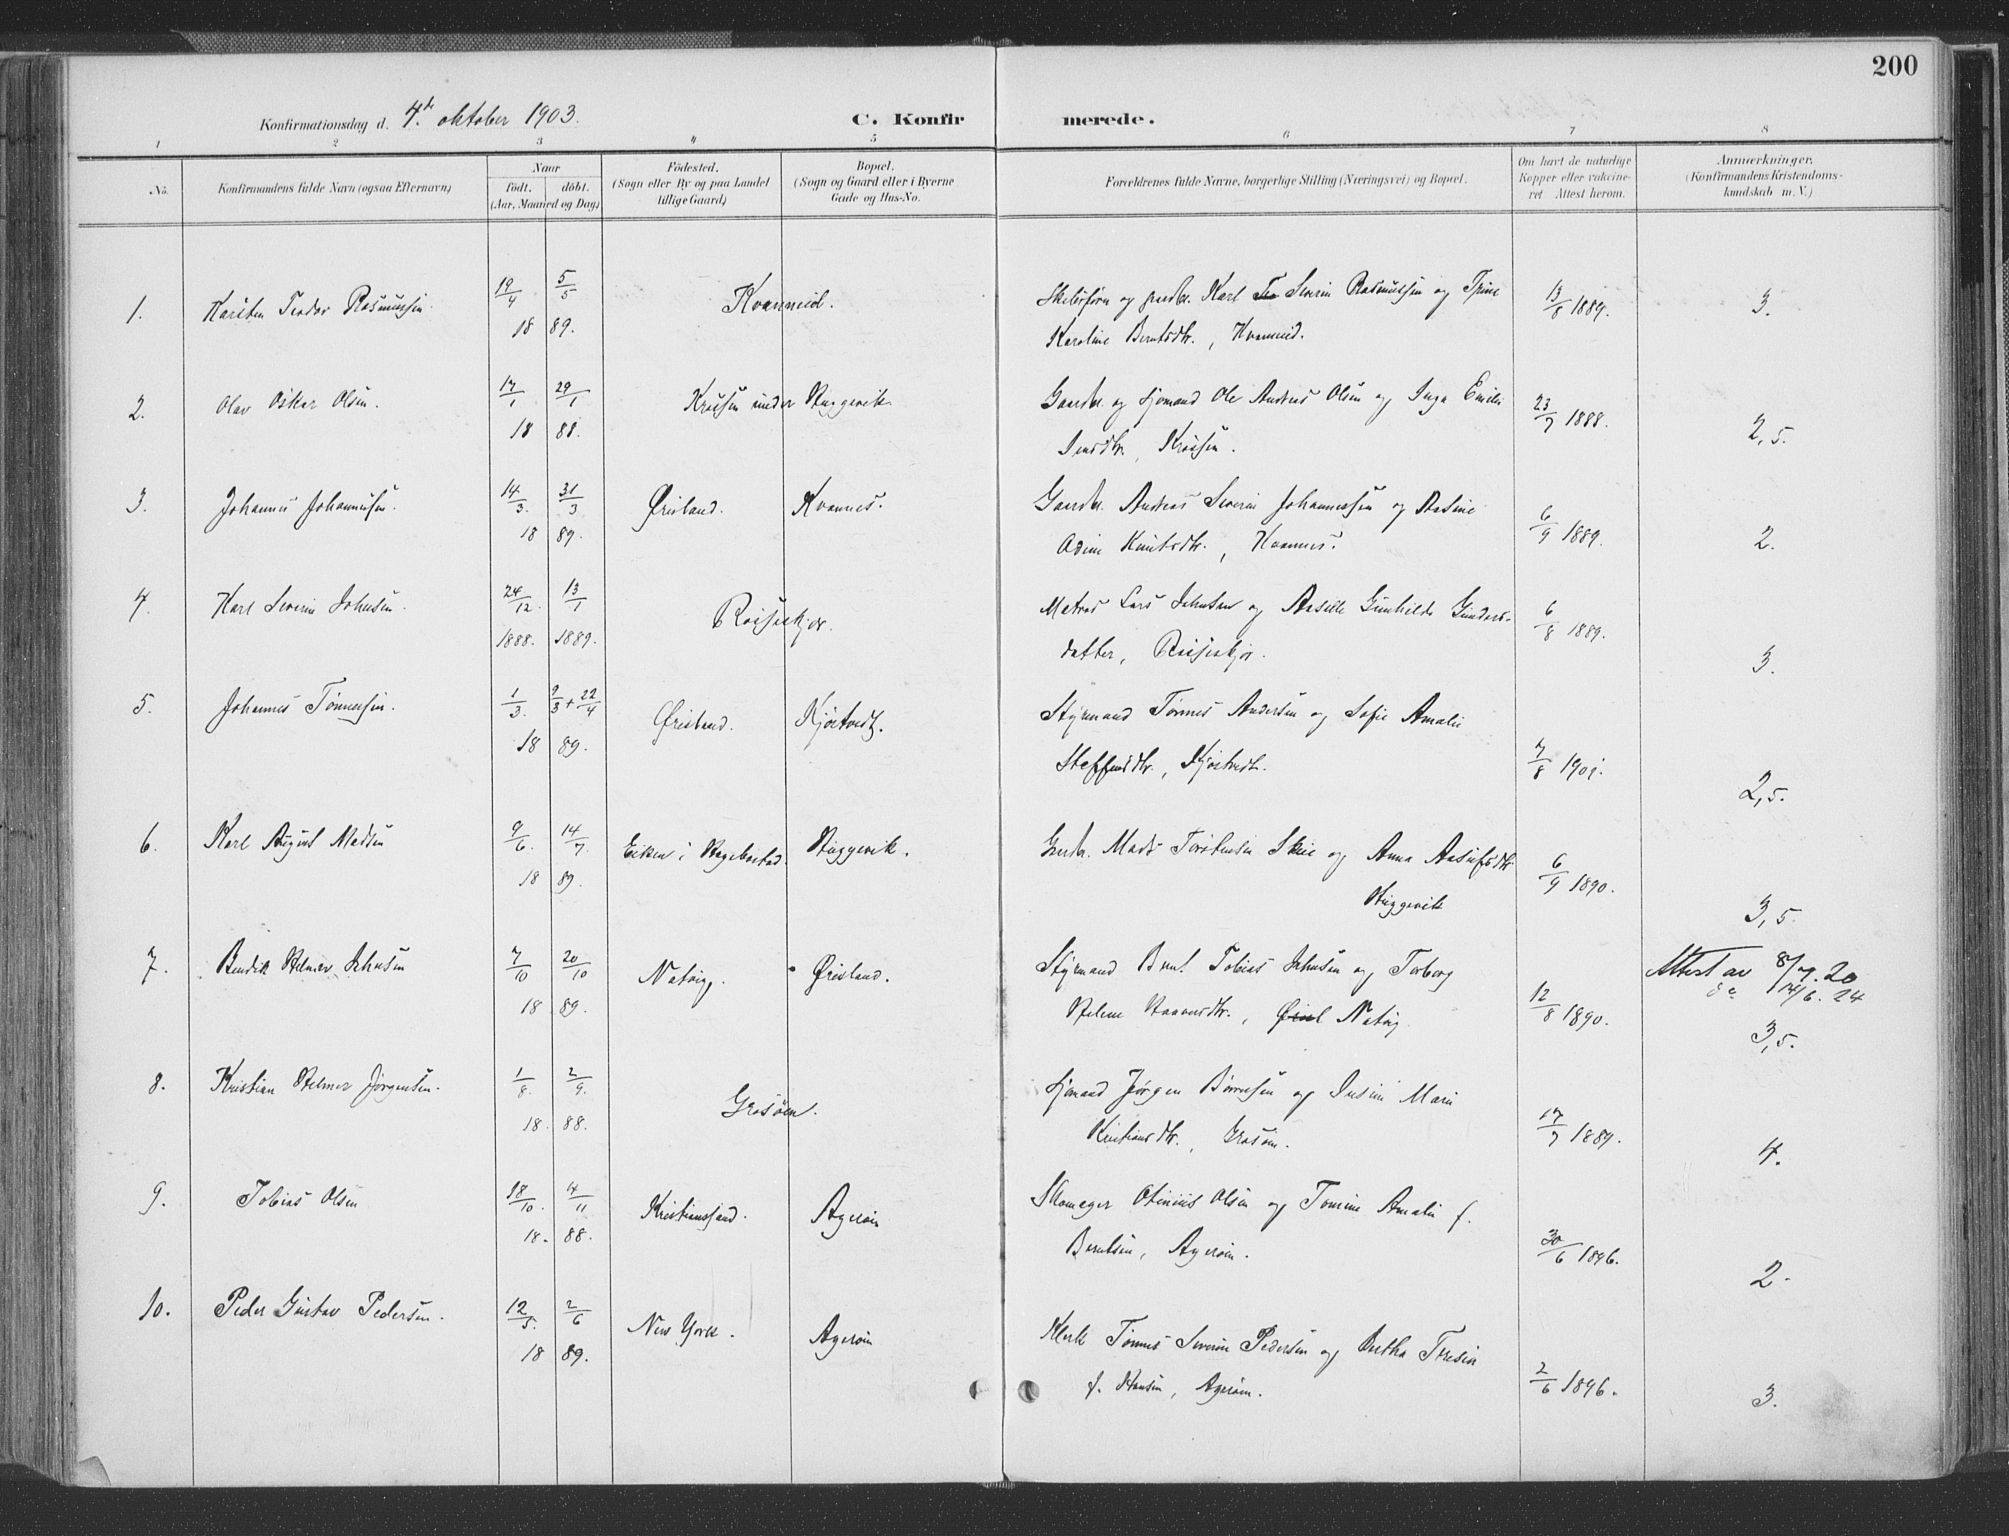 200
Konfirmationsdag d. 4de oktober 1903. C. Konfirmerede.
1 2 3 4 5 6 7 8
No.
Konfirmandens fulde Navn (ogsaa Efternavn)
Naar
födt. döbt.
(Aar, Maaned og Dag)
Födested.
(Sogn eller By og paa Landet
tillige Gaard)
Bopæl.
(Sogn og Gaard eller i Byerne
Gade og Hus-No.
Forældrenes fulde Navne, borgerlige Stilling (Næringsvei) og Bopæl.
Om havt de naturlige
Kopper eller vakcine-
ret Attest herom.
Anmærkninger.
(Konfirmandens Kristendoms-
kundskab m. V.)
1. Karsten Teodor Rasmussen 19/4 5/5 Kvanneid. og Karl Severin Rasmussen og Trine 13/8 1889. 3.
18 89. Karoline Berntsdtr., Kvanneid.
2. Olav Oskar Olsen. 17/1 29/1 under Stuggevik. Gaardbr. og sjømand Ole Andreas Olsen og Inga Emilie 23/7 1888. 2,5.
18 88.
3. Johannes Johannessen. 14/3. 31/3 Øvisland. Kvannes. Gaardbr. Andreas Severin Johannessen og Rasine 6/9 1889. 2.
18 89. Knutsdtr., Kvannes.
4. Karl Severin Johnsen. 24/12. 13/1 Lars Johnsen og Gunhilde Gunders- 6/8 1889. 3.
1888. 1889. datter,
5. Johannes Tønnessen. 1/3. 9/3 + 22/4 Øvisland. Kjøstvedt. Styrmand Tønnes Andersen og Sofie Amalie
18 89. Steffensdtr., Kjøstvedt. 7/8 1901. 2,5.
6. Karl August Madsen 9/6. 14/7. Eiken i Hægebostad. Stuggevik. Mads Torstensen Skeie og Anna 6/9 1890. 3,5.
18 89. Stuggevik
7. Bendik Helmer Johnsen 7/10 20/10 Natvig. Øvisland. Styrmand Bent Tobias Johnsen og Torborg Attest av 8/7. 20
18 89. Helene Natvig. 12/8 1890. 14/6. 24
3,5.
8. Kristian Helmer Jørgensen. 1/8. 2/9. Grosøen. Sjømand Jørgen og Marie
18. 88. Kristiansdtr., Grosøen. 17/7 1889. 4.
9. Tobias Olsen 18/10. 4/11 Kristianssand. Agerøen Skomager Olsen og Tomine Amalie f.
18. 88. Berntsen, Agerøen. 30/6 1896. 2.
10. Peder Gustav Pedersen. 12/5. 2/6 New York. Agerøen Tønnes Severin Pedersen og Bertha Tresia
18 89. f. Hansen, Agerøen. 2/6 1896. 3.